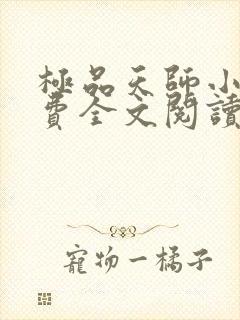 極品天師小
費全文閱讀
寵物一橘子